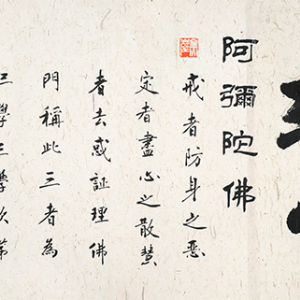 阿彌陀佛
戒者防身之惡
定者盡心之散慧
者去惑証理佛
門稱此三者為
三學三學次第